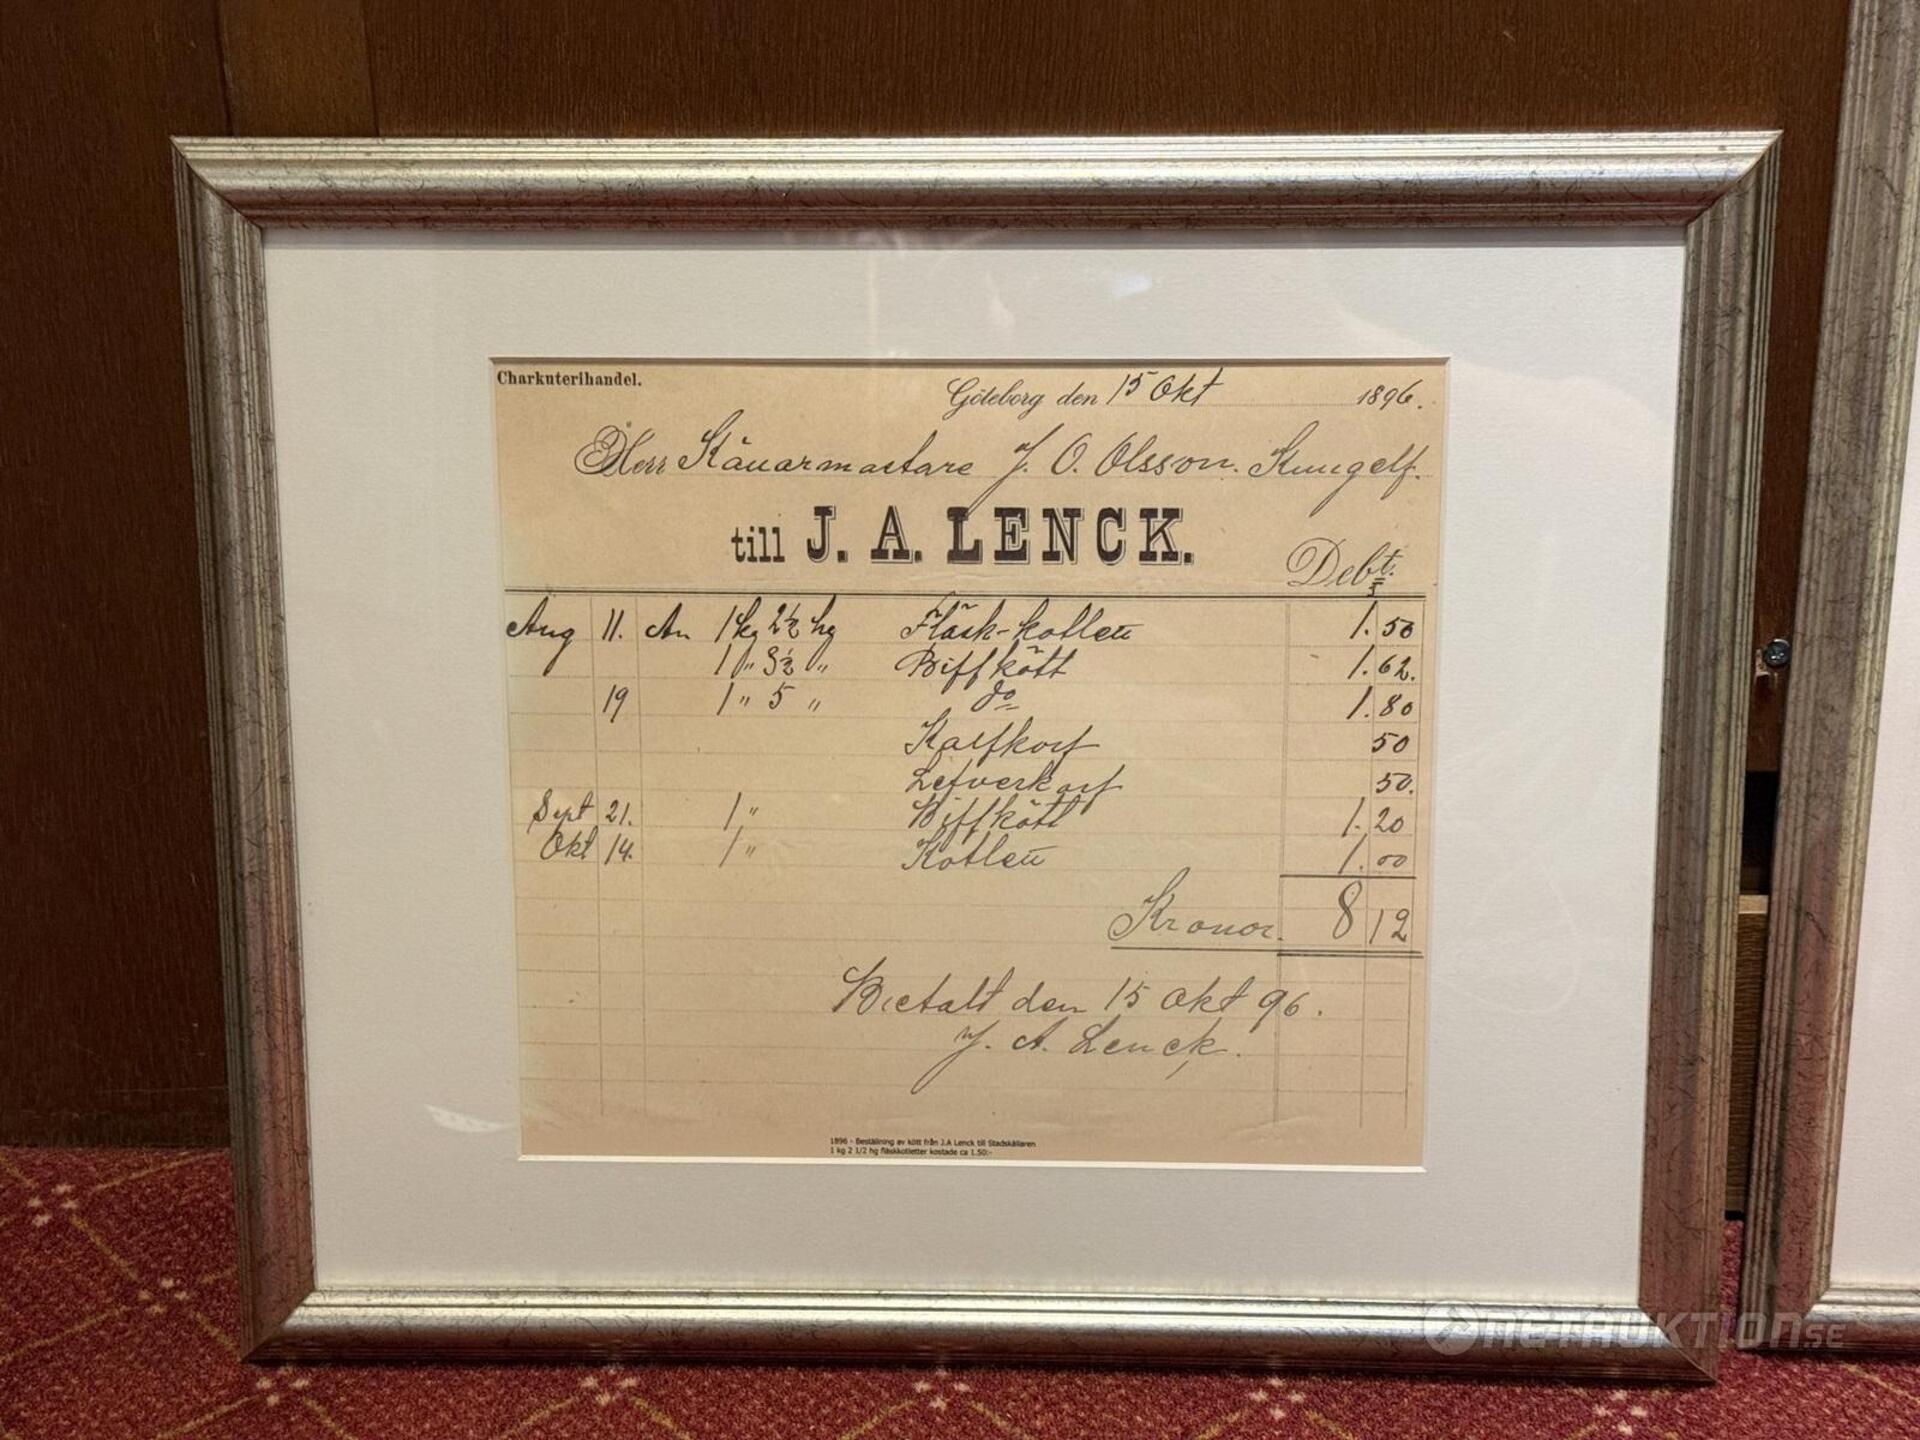 Charkuterihandel.
Göteborg den 15 Okt 1896.
Herr Källarmästare J. O. Olsson. Kungelf.
till J. A. LENCK.
Debt.
Aug 11. An 1 kg 2½ hg Fläsk-kotlett 1.50
1 " 3½ " Biffkött 1.62.
19 1 " 5 " do 1.80
Kalfkorf 50
Lefverkorf 50.
Sept 21. 1 " Biffkött 1.20
Okt 14. 1 " Kotlett 1.00
Kronor. 8 12
Betalt den 15 Okt 96.
J. A. Lenck.
1896 - Beställning av kött från J.A Lenck till Stadskällaren
1 kg 2 1/2 hg fläskkotletter kostade ca 1.50:-
NETAUKTION.SE